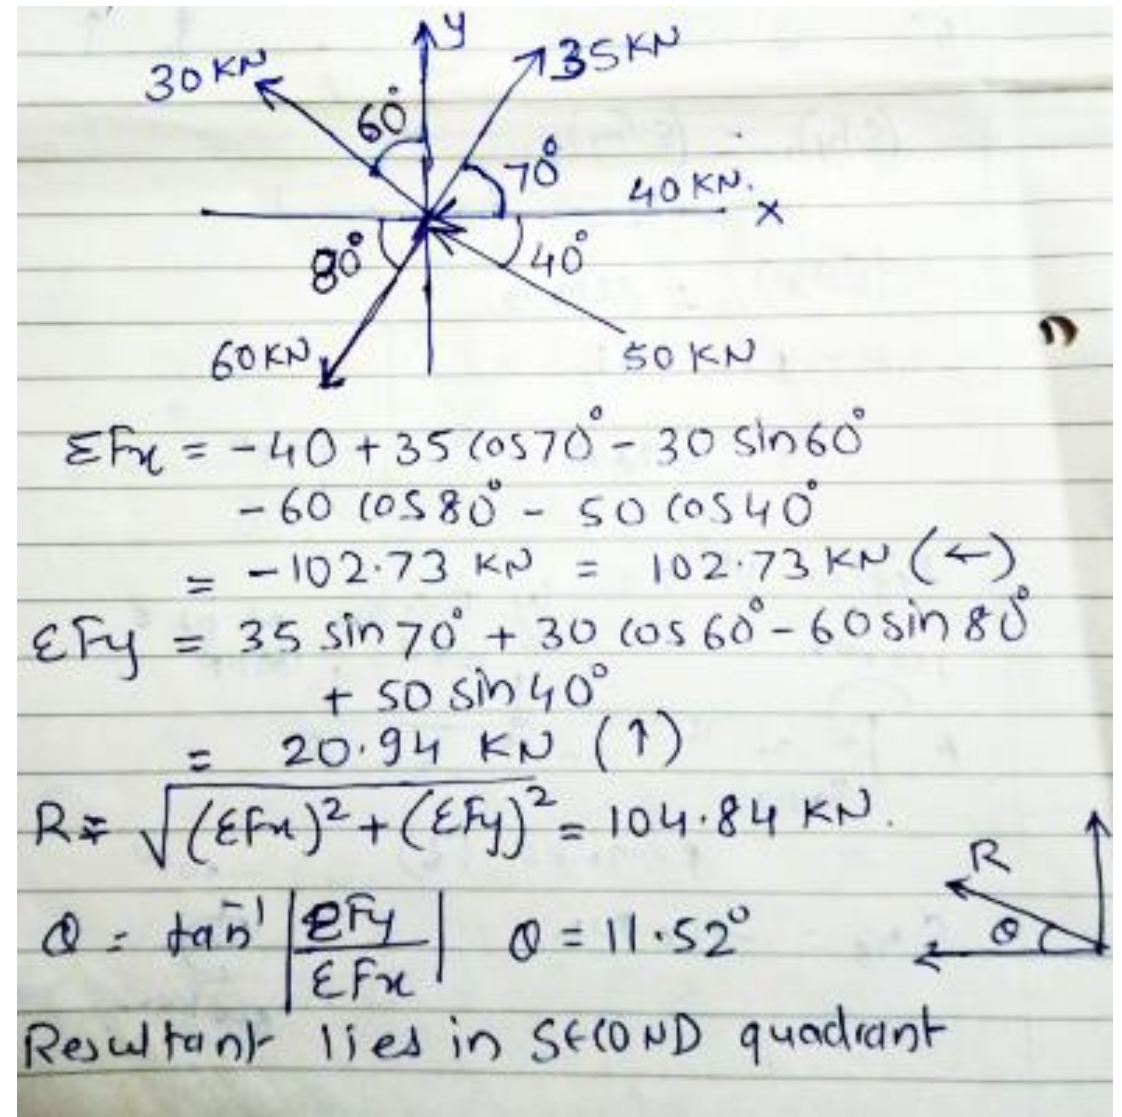 y
30 KN
35 KN
60°
70°
40 KN.
x
80°
40°
60 KN
50 KN
ΣFx = -40 + 35 cos70° - 30 sin60°
-60 cos80° - 50 cos40°
= -102.73 KN = 102.73 KN (←)
ΣFy = 35 sin70° + 30 cos60° - 60 sin80°
+ 50 sin40°
= 20.94 KN (↑)
R = √(ΣFx)² + (ΣFy)² = 104.84 KN.
R
θ = tan⁻¹ |ΣFy/ΣFx| θ = 11.52°
θ
Resultant lies in SECOND quadrant